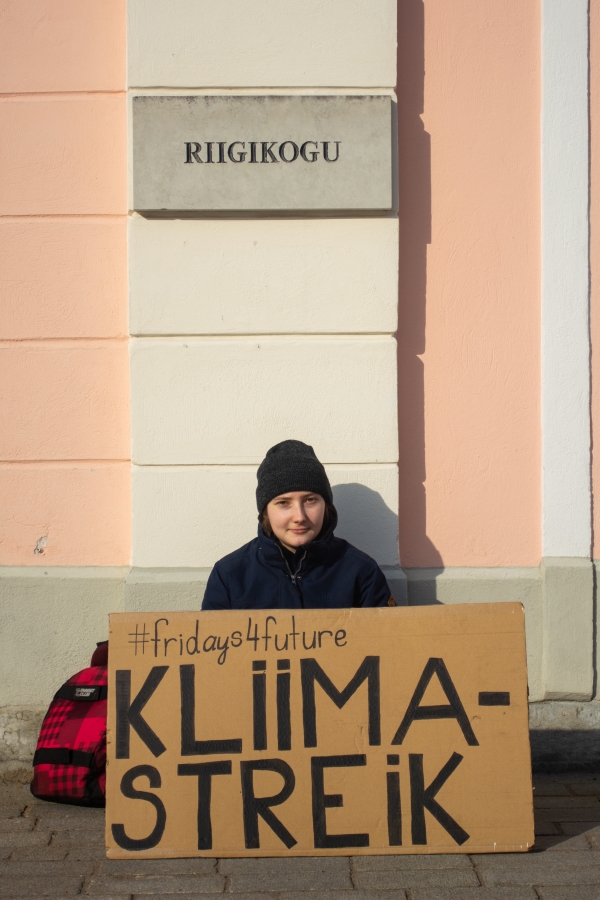 RIIGIKOGU
#fridays4future
KLiiMA-
STREiK